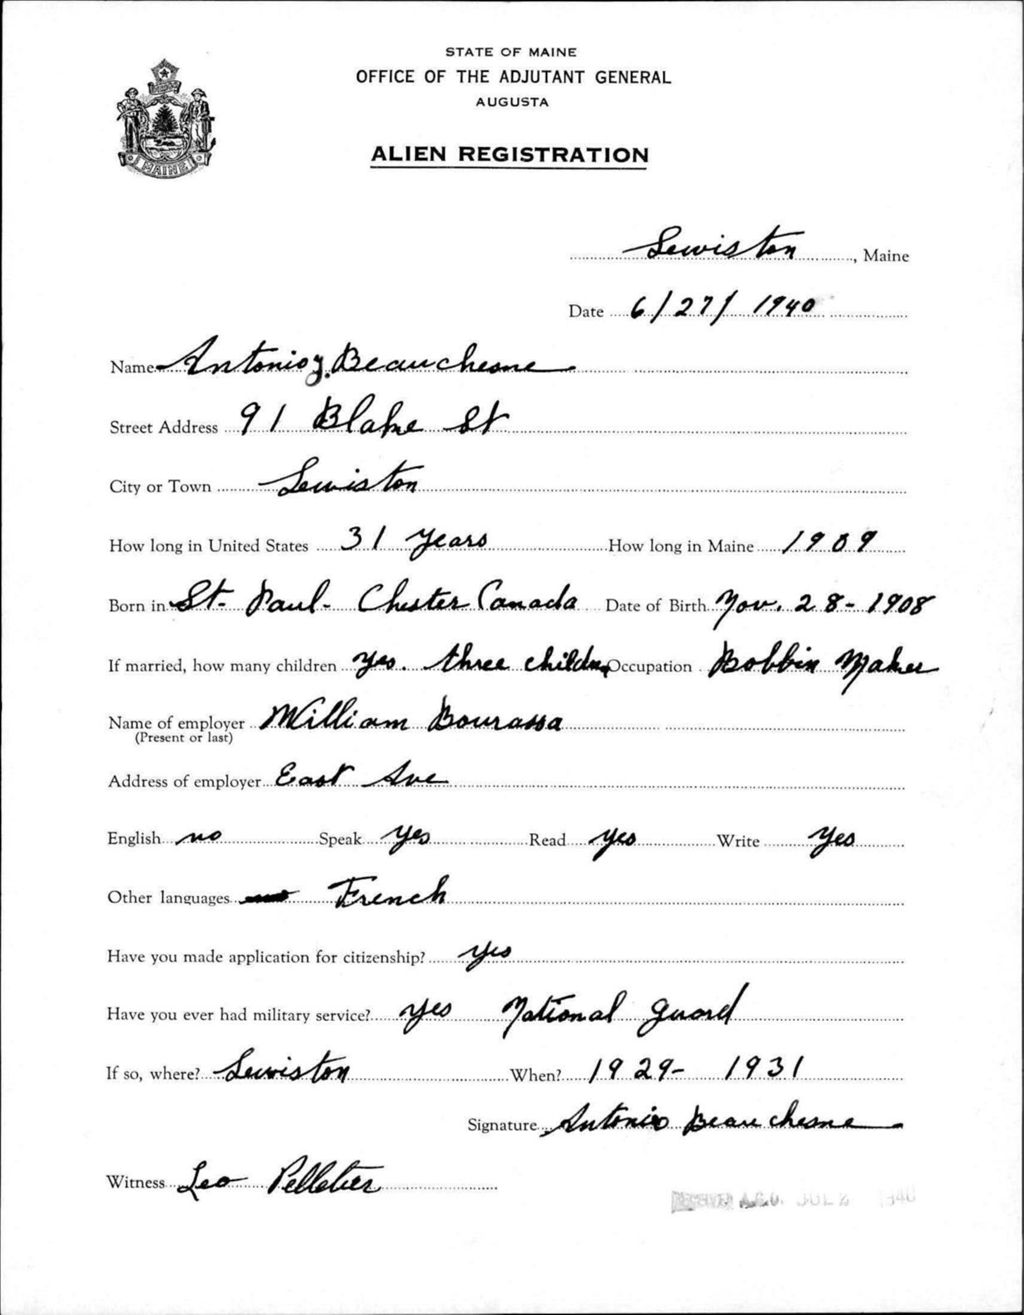 STATE OF MAINE
OFFICE OF THE ADJUTANT GENERAL
AUGUSTA
MAINE
ALIEN REGISTRATION
Lewiston, Maine
Date 6/27/1940
Name Antonio J. Beauchesne
Street Address 91 Blake St
City or Town Lewiston
How long in United States 31 years How long in Maine 1909
Born in St. Paul- Chester Canada Date of Birth Nov. 28-1908
If married, how many children yes. three children Occupation Bobbin Maker
Name of employer William Bourassa
(Present or last)
Address of employer East Ave
English no Speak yes Read yes Write yes
Other languages French
Have you made application for citizenship? yes
Have you ever had military service? yes National guard
If so, where? Lewiston When? 1929- 1931
Signature Antonio Beauchesne
Witness Leo Pelletier
A.G.O. JUL 2 1940